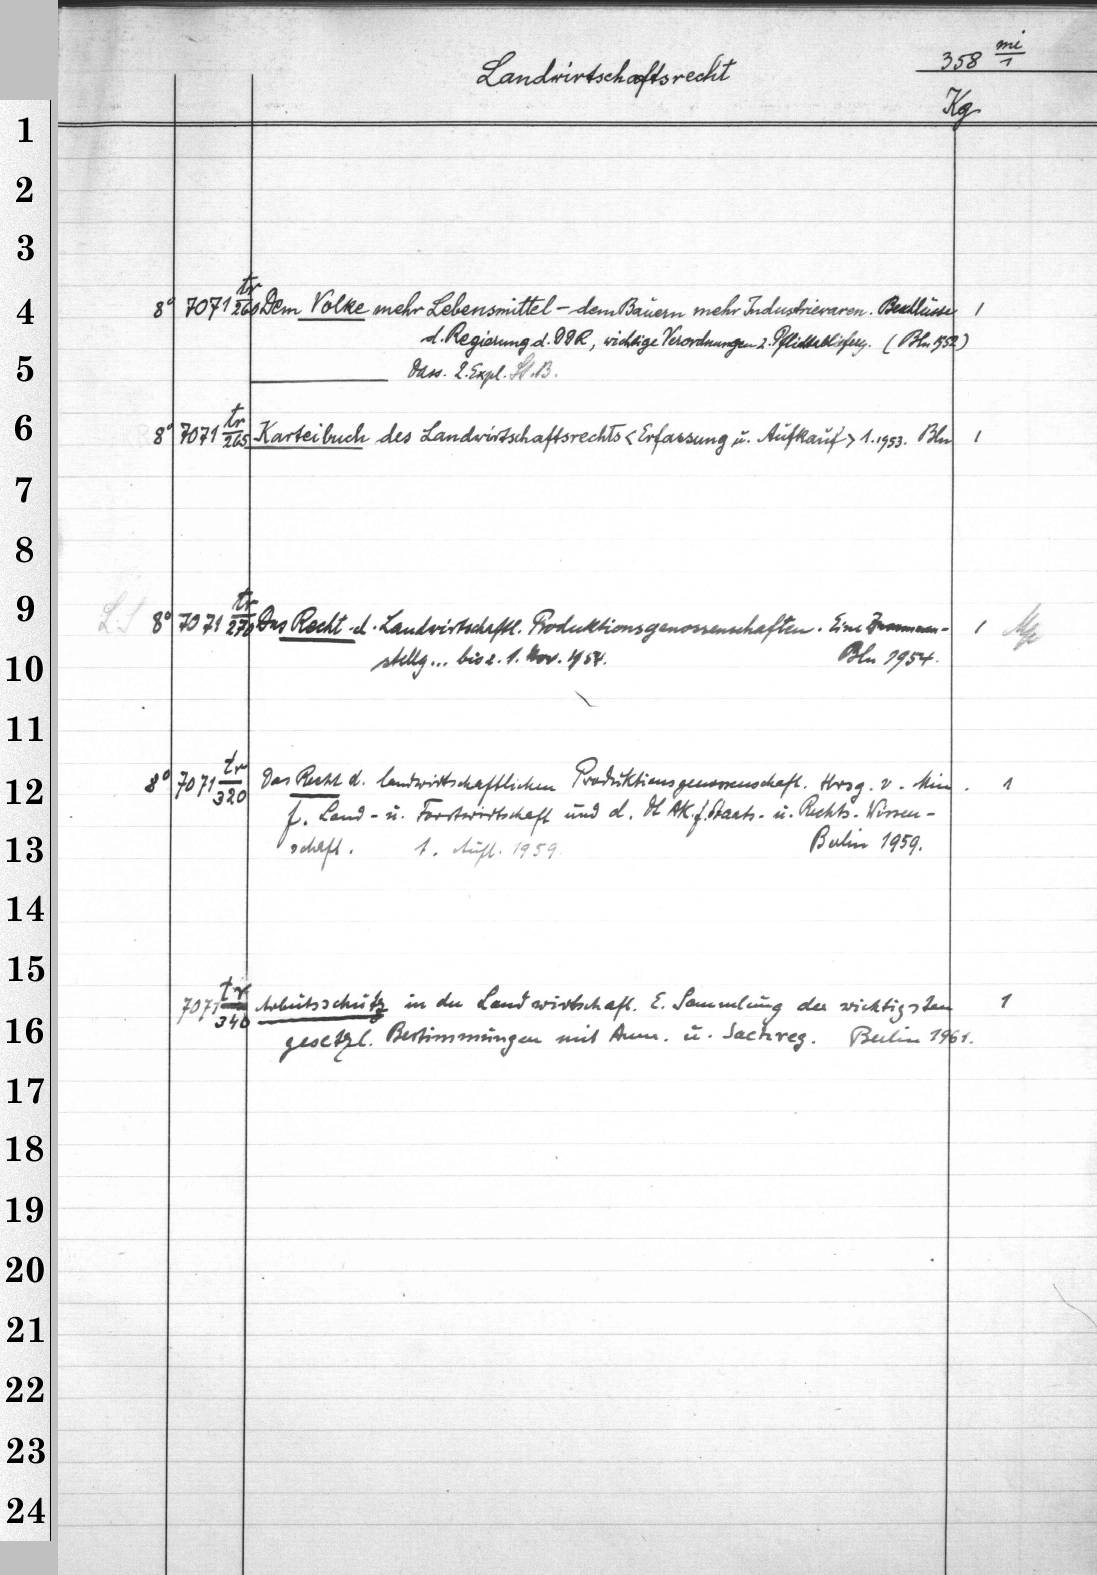 Landwirtschaftsrecht
358 mi/1
Kg
1
2
3
4
5
6
7
8
9
10
11
12
13
14
15
16
17
18
19
20
21
22
23
24
8° 7071 tr/260 Dem Volke mehr Lebensmittel – dem Bauern mehr Industriewaren. Beschlüsse 1
d. Regierung d. DDR, wichtige Verordnungen z. Pflichtabliefg. (Bln 1952)
Dass. 2. Expl. St. B.
8° 7071 tr/265 Karteibuch des Landwirtschaftsrechts <Erfassung u. Aufkauf> 1.1953. Bln 1
L S 8° 7071 tr/270 Das Recht d. Landwirtschaftl. Produktionsgenossenschaften. Eine Zusammen- 1
stellg... bis z. 1. Nov. 1954. Bln 1954.
8° 7071 tr/320 Das Recht d. landwirtschaftlichen Produktionsgenossenschaft. Hrsg. v. Min. 1
f. Land- u. Forstwirtschaft und d. Dt AK. f. Staats- u. Rechts-Wissen-
schaft. 1. Aufl. 1959. Berlin 1959.
7071 tr/340 Arbeitsschutz in der Landwirtschaft. E. Sammlung der wichtigsten 1
gesetzl. Bestimmungen mit Anm. u. Sachreg. Berlin 1961.